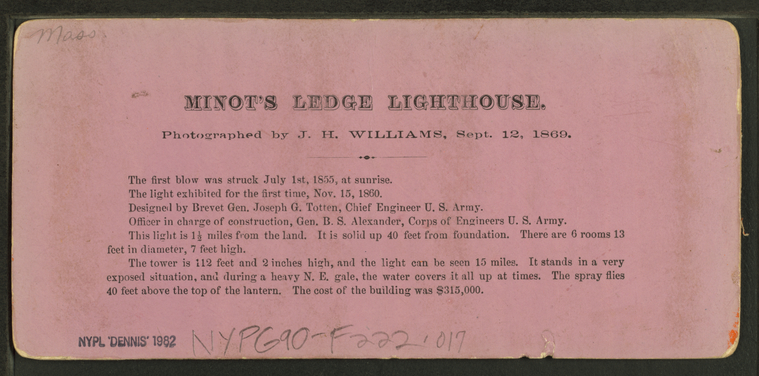 Mass
MINOT'S LEDGE LIGHTHOUSE.
Photographed by J. H. WILLIAMS, Sept. 12, 1869.
The first blow was struck July 1st, 1855, at sunrise.
The light exhibited for the first time, Nov. 15, 1860.
Designed by Brevet Gen. Joseph G. Totten, Chief Engineer U. S. Army.
Officer in charge of construction, Gen. B. S. Alexander, Corps of Engineers U. S. Army.
This light is 1½ miles from the land. It is solid up 40 feet from foundation. There are 6 rooms 13
feet in diameter, 7 feet high.
The tower is 112 feet and 2 inches high, and the light can be seen 15 miles. It stands in a very
exposed situation, and during a heavy N. E. gale, the water covers it all up at times. The spray flies
40 feet above the top of the lantern. The cost of the building was $315,000.
NYPL 'DENNIS' 1982
NYPG90-F222.017